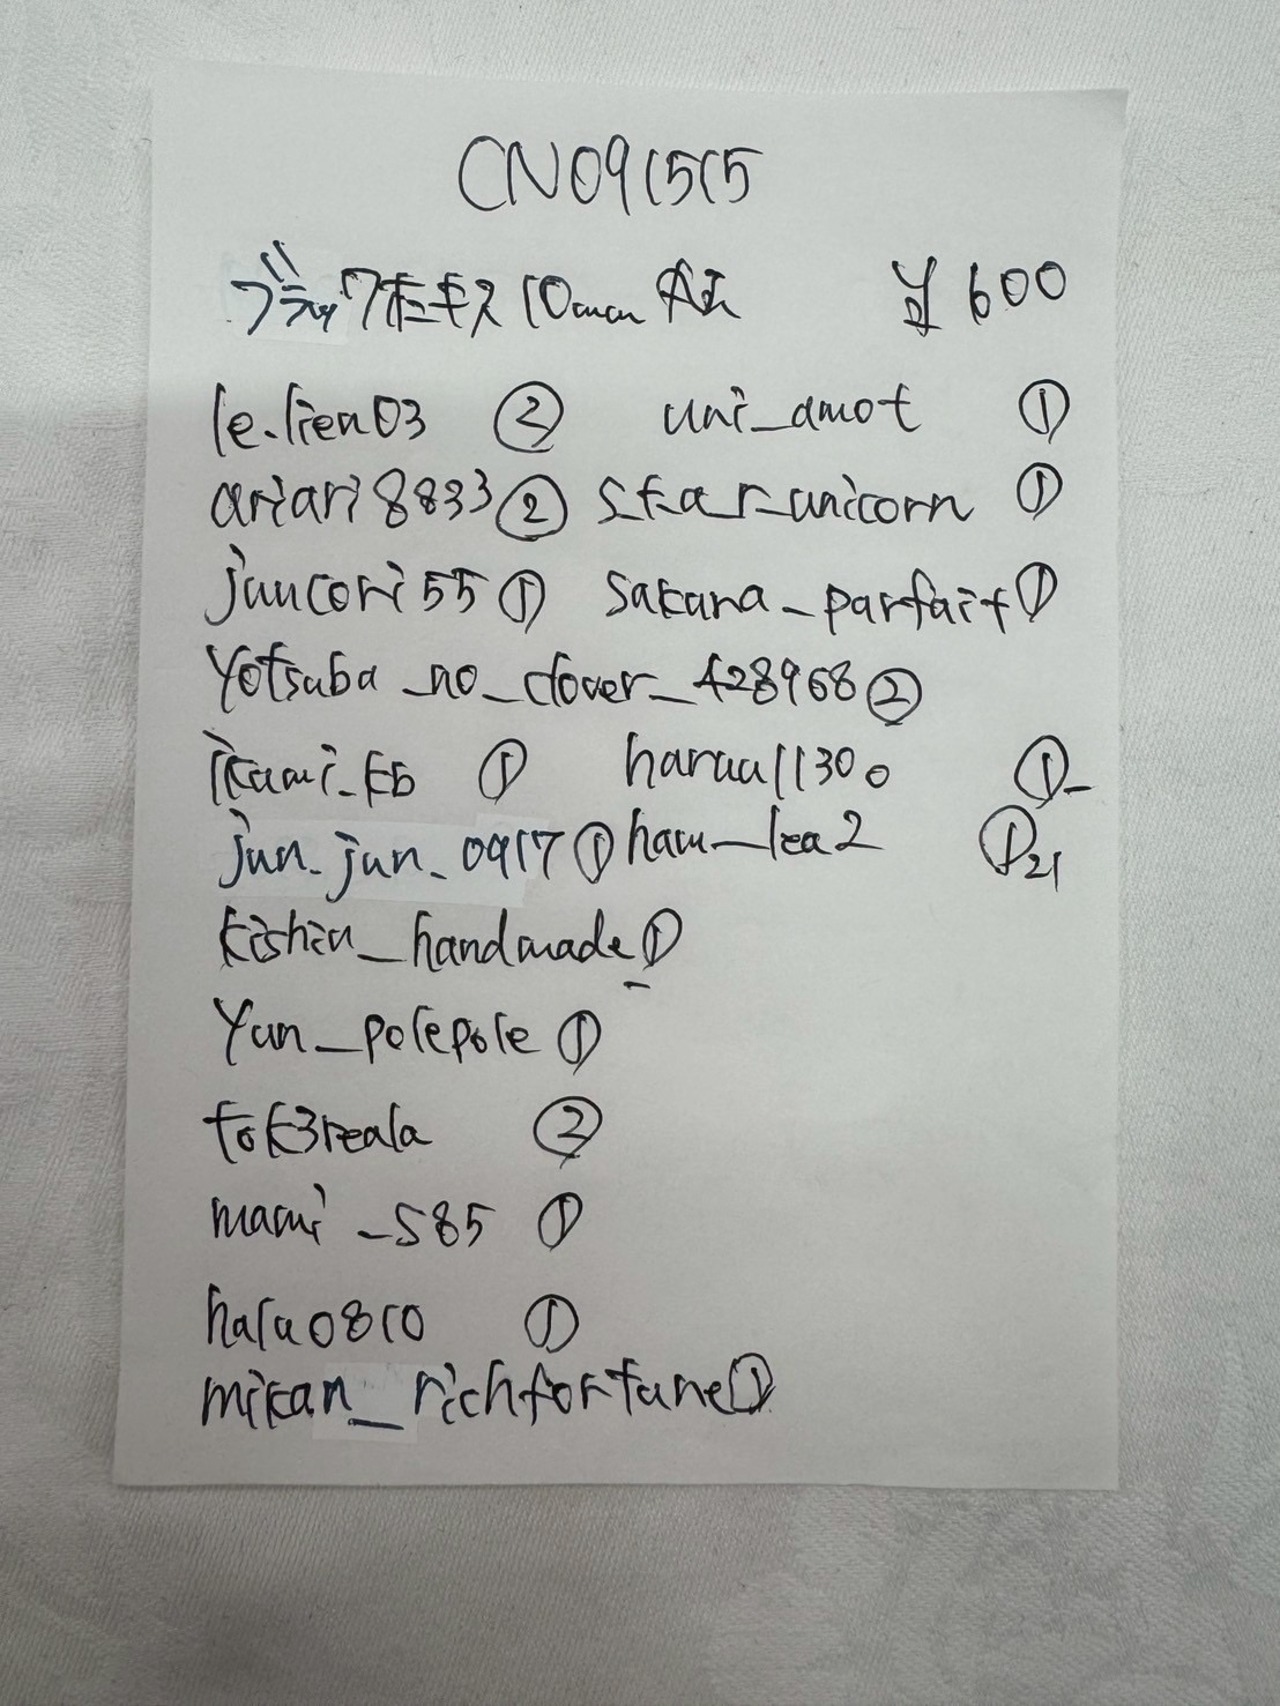 CN091515
ブラックオニキス 10mm 大玉 ¥600
le.lien03 ② uni_amot ①
ariari8833 ② s_t_a_r_unicorn ①
juncori55 ① sakana_parfait ①
yotsuba_no_clover_428968 ②
ikumi_kb ① haruu11300 ①-
jun.jun.0917 ① haru_lea2 ① 21
kishin_handmade ①
yun_polepole ①
tok3reala ②
mami_585 ①
halu0810 ①
mikan_richfortune ①